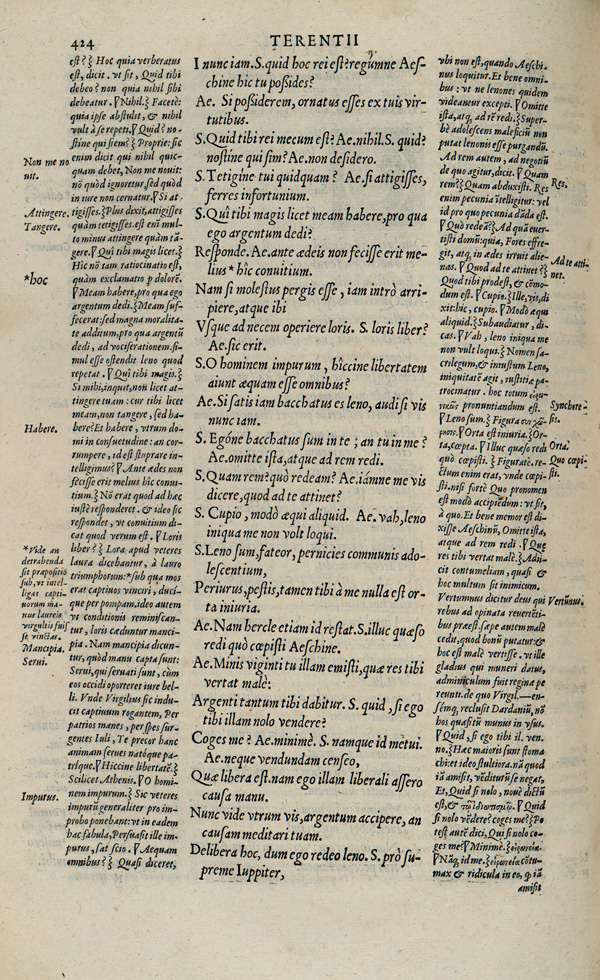 424
TERENTII
est? ξ Hoc quia verberatus
est, dicit. vt sit, Quid tibi
debeo? non quia nihil sibi
debeatur. ⁋ Nihil. ξ Facetè:
quia ipse abstulit, & nihil
vult à se repeti. ⁋ Quid? no-
stine qui siem? ξ Propriè: sic
enim dicit qui nihil quic-
quam debet, Non me nouit:
nō quòd ignoretur, sed quòd
in iure non cernatur. ⁋ Si at
tigisses. ξ Plus dixit, attigisses
quàm tetigisses. est em̄ mul-
to minus attingere quàm tā-
gere. ⁋ Quî tibi magis licet. ξ
Hîc nō tam ratiocinatio est,
quàm exclamatio p dolorē.
⁋ Meam habere, pro qua ego
argentum dedi. ξ Meam suf-
fecerat: sed magna moralita-
te additum, pro qua argentū
dedi, ad vociferationem. si-
mul esse ostendit leno quod
repetat. ⁋ Quî tibi magis. ξ
Si mihi, inquit, non licet at-
tingere tuam: cur tibi licet
meam, non tangere, sed ha-
bere? Et habere, vtrum do-
mi in consuetudine: an cor-
rumpere, id est stuprare in-
telligimus? ⁋ Ante ædes non
fecisse erit melius hîc conui-
tium. ξ Nō erat quod ad hæc
iustè responderet. & ideo sic
respondet, vt conuitium di-
cat quod verum est. ⁋ Loris
liber? ξ Lora apud veteres
laura dicebantur, à lauro
triumphorum: *sub qua mos
erat captiuos vinciri, duci-
que per pompam. ideo autem
vt conditionis reminiscan-
tur, loris cæduntur manci-
pia. Nam mancipia dicun-
tur, quòd manu capta sunt:
Serui, qui seruati sunt, cùm
eos occidi oporteret iure bel-
li. Vnde Virgilius sic indu-
cit captiuum rogantem, Per
patrios manes, per spes sur-
gentes Iuli, Te precor hanc
animam serues natóque pa-
tríque. ⁋ Hiccine libertatē. ξ
Scilicet Athenis. ⁋ O homi-
nem impurum. ξ Sic veteres
impurū generaliter pro im-
probo ponebant: vt in eadem
hac fabula, Persuasit ille im-
purus, sat scio. ⁋ Aequam
omnibus? ξ Quasi diceret,
Non me no
uit.
Attingere.
Tangere.
*hoc
Habere.
*Vide an
detrahenda
sit præpositio
sub, vt intel-
ligas capti-
uorum ma-
nus laureis
virgultis fuis
se vinctas.
Mancipia.
Serui.
Impurus.
I nunc iam. S. quid hoc rei est? regúmne Aes-
chine hîc tu possides?
Ae. Si possiderem, ornatus esses ex tuis vir-
tutibus.
S. Quid tibi rei mecum est? Ae. nihil. S. quid?
nostine qui sim? Ae. non desidero.
S. Tetigine tui quidquam? Ae. si attigisses,
ferres infortunium.
S. Quî tibi magis licet meam habere, pro qua
ego argentum dedi?
Responde. Ae. ante ædeis non fecisse erit me-
lius *hîc conuitium.
Nam si molestus pergis esse, iam intrò arri-
piere, atque ibi
Vsque ad necem operiere loris. S. loris liber?
Ae. sic erit.
S. O hominem impurum, hîccine libertatem
aiunt æquam esse omnibus?
Ae. Si satis iam bacchatus es leno, audi si vis
nunc iam.
S. Egóne bacchatus sum in te; an tu in me?
Ae. omitte ista, atque ad rem redi.
S. Quam rem? quò redeam? Ae. iámne me vis
dicere, quod ad te attinet?
S. Cupio, modò æqui aliquid. Ae. vah, leno
iniqua me non volt loqui.
S. Leno sum, fateor, pernicies communis ado-
lescentium,
Periurus, pestis, tamen tibi à me nulla est or-
ta iniuria.
Ae. Nam hercle etiam id restat. S. illuc quæso
redi quò cœpisti Aeschine.
Ae. Minis viginti tu illam emisti, quæ res tibi
vertat malè:
Argenti tantum tibi dabitur. S. quid, si ego
tibi illam nolo vendere?
Coges me? Ae. minimè. S. namque id metui.
Ae. neque vendundam censeo,
Quæ libera est. nam ego illam liberali assero
causa manu.
Nunc vide vtrum vis, argentum accipere, an
causam meditari tuam.
Delibera hoc, dum ego redeo leno. S. prô su-
preme Iuppiter,
vbi non est, quando Aeschi-
nus loquitur. Et bene omni-
bus: vt ne lenones quidem
videantur excepti. ⁋ Omitte
ista, atq, ad rē redi. ξ Super-
bè adolescens maleficiū non
putat lenonis esse purgandū.
Ad rem autem, ad negotiū
de quo agitur, dicit. ⁋ Quam
rem? ξ Quam abduxisti. Res
enim pecunia ītelligitur: vel
id pro quo pecunia dāda est.
⁋ Quò redeā? ξ Ad quā euer-
tisti domū: quia, Fores effre-
git, atq, in ædes irruit alie-
nas. ⁋ Quod ad te attinet? ξ
Quod tibi prodest, & cōmo-
dum est. ⁋ Cupio. ξ Ille, vis, di
xit: hic, cupio. ⁋ Modò æqui
aliquid. ξ Subaudiatur, di-
cas. ⁋ Vah, leno iniqua me
non vult loqui. ξ Nomen sa-
crilegum, & iniustum Leno,
iniquitatē agit, iustitiæ pa-
trocinatur. hoc totum
pronuntiandum est.
⁋ Leno sum. ξ Figura
⁋ Orta est iniuria. ξ Or-
ta, cœpta. ⁋ Illuc quæso redi
quò cœpisti. ξ Figuratè. re-
ctum enim erat, vnde cœpi-
sti. nisi fortè Quo pronomen
est modò accipiēdum: vt sit,
à quo. Et bene memor est di-
xisse Aeschinū, Omitte ista,
atque ad rem redi. ⁋ Quæ
res tibi vertat malè. ξ Adii-
cit contumeliam, quasi &
hoc multum sit inimicum.
Vertumnus dicitur deus qui
rebus ad opinata reuerti-
bus præest. sæpe autem malè
cedit, quod bonū putatur: &
hoc est malè vertisse. vt ille
gladius qui muneri datus,
adminiculum fuit reginæ pe
reunti. de quo Virgil. —en-
sémq, reclusit Dardaniū, nō
hos quæsitū munus in vsus.
⁋ Quid, si ego tibi il. ven.
no. ξ Hæc maioris sunt stoma
chi: et ideo stultiora. nā quod
iā amisit, vēditurū se negat,
Et, Quid si nolo, nouè dictū
est, & ⁋ Quid
si nolo vēdere? coges me? ξ Po
test autē dici, Qui si nolo co-
ges me? ⁋ Minimè. ξ
⁋ Nāq, id me. ξ cōtu-
max & ridicula in eo, q iā
amisit
Res.
Ad te atti-
net.
Synchore-
sis.
Orta.
Quo cœpi-
sti.
Vertūnus.